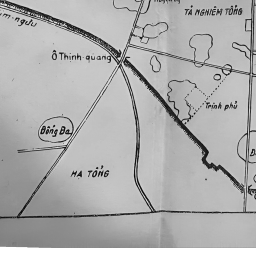 TẢ NGHIÊM TỔNG
Ô Thịnh-quang
Trịnh phủ
Đống Đa
HA TỔNG